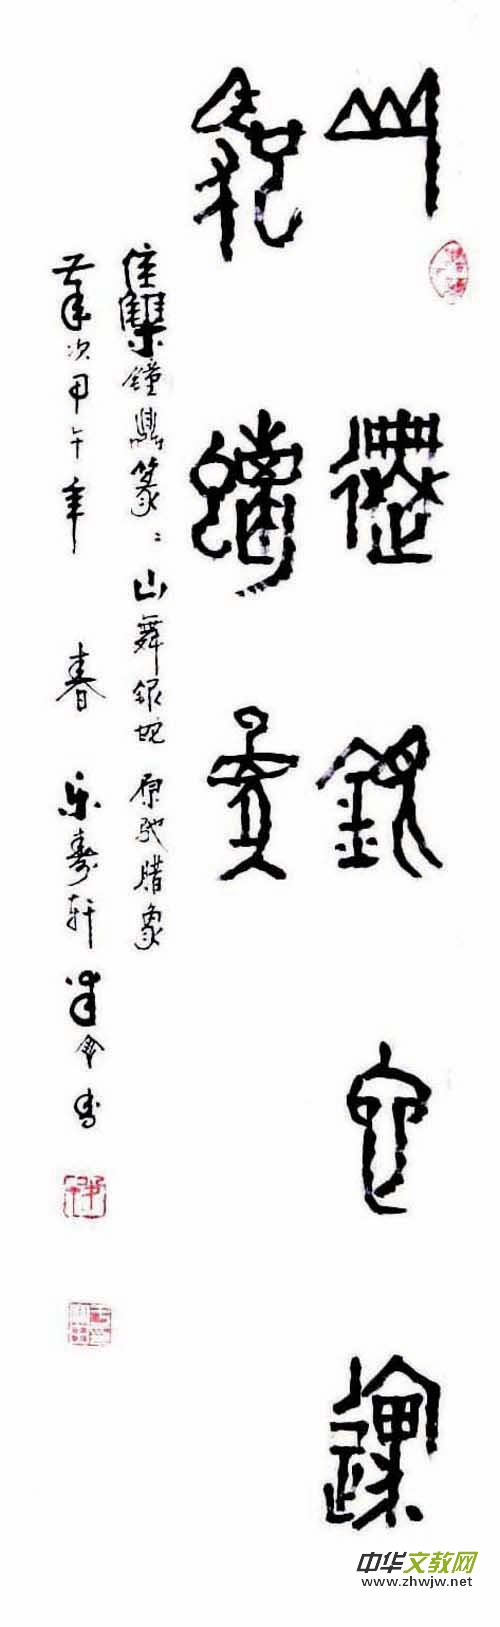 山舞銀蛇原
馳臘象
集鐘鼎篆：山舞银蛇 原驰腊象
岁次甲午年 春 乐寿轩
中华文教网
www.zhwjw.net